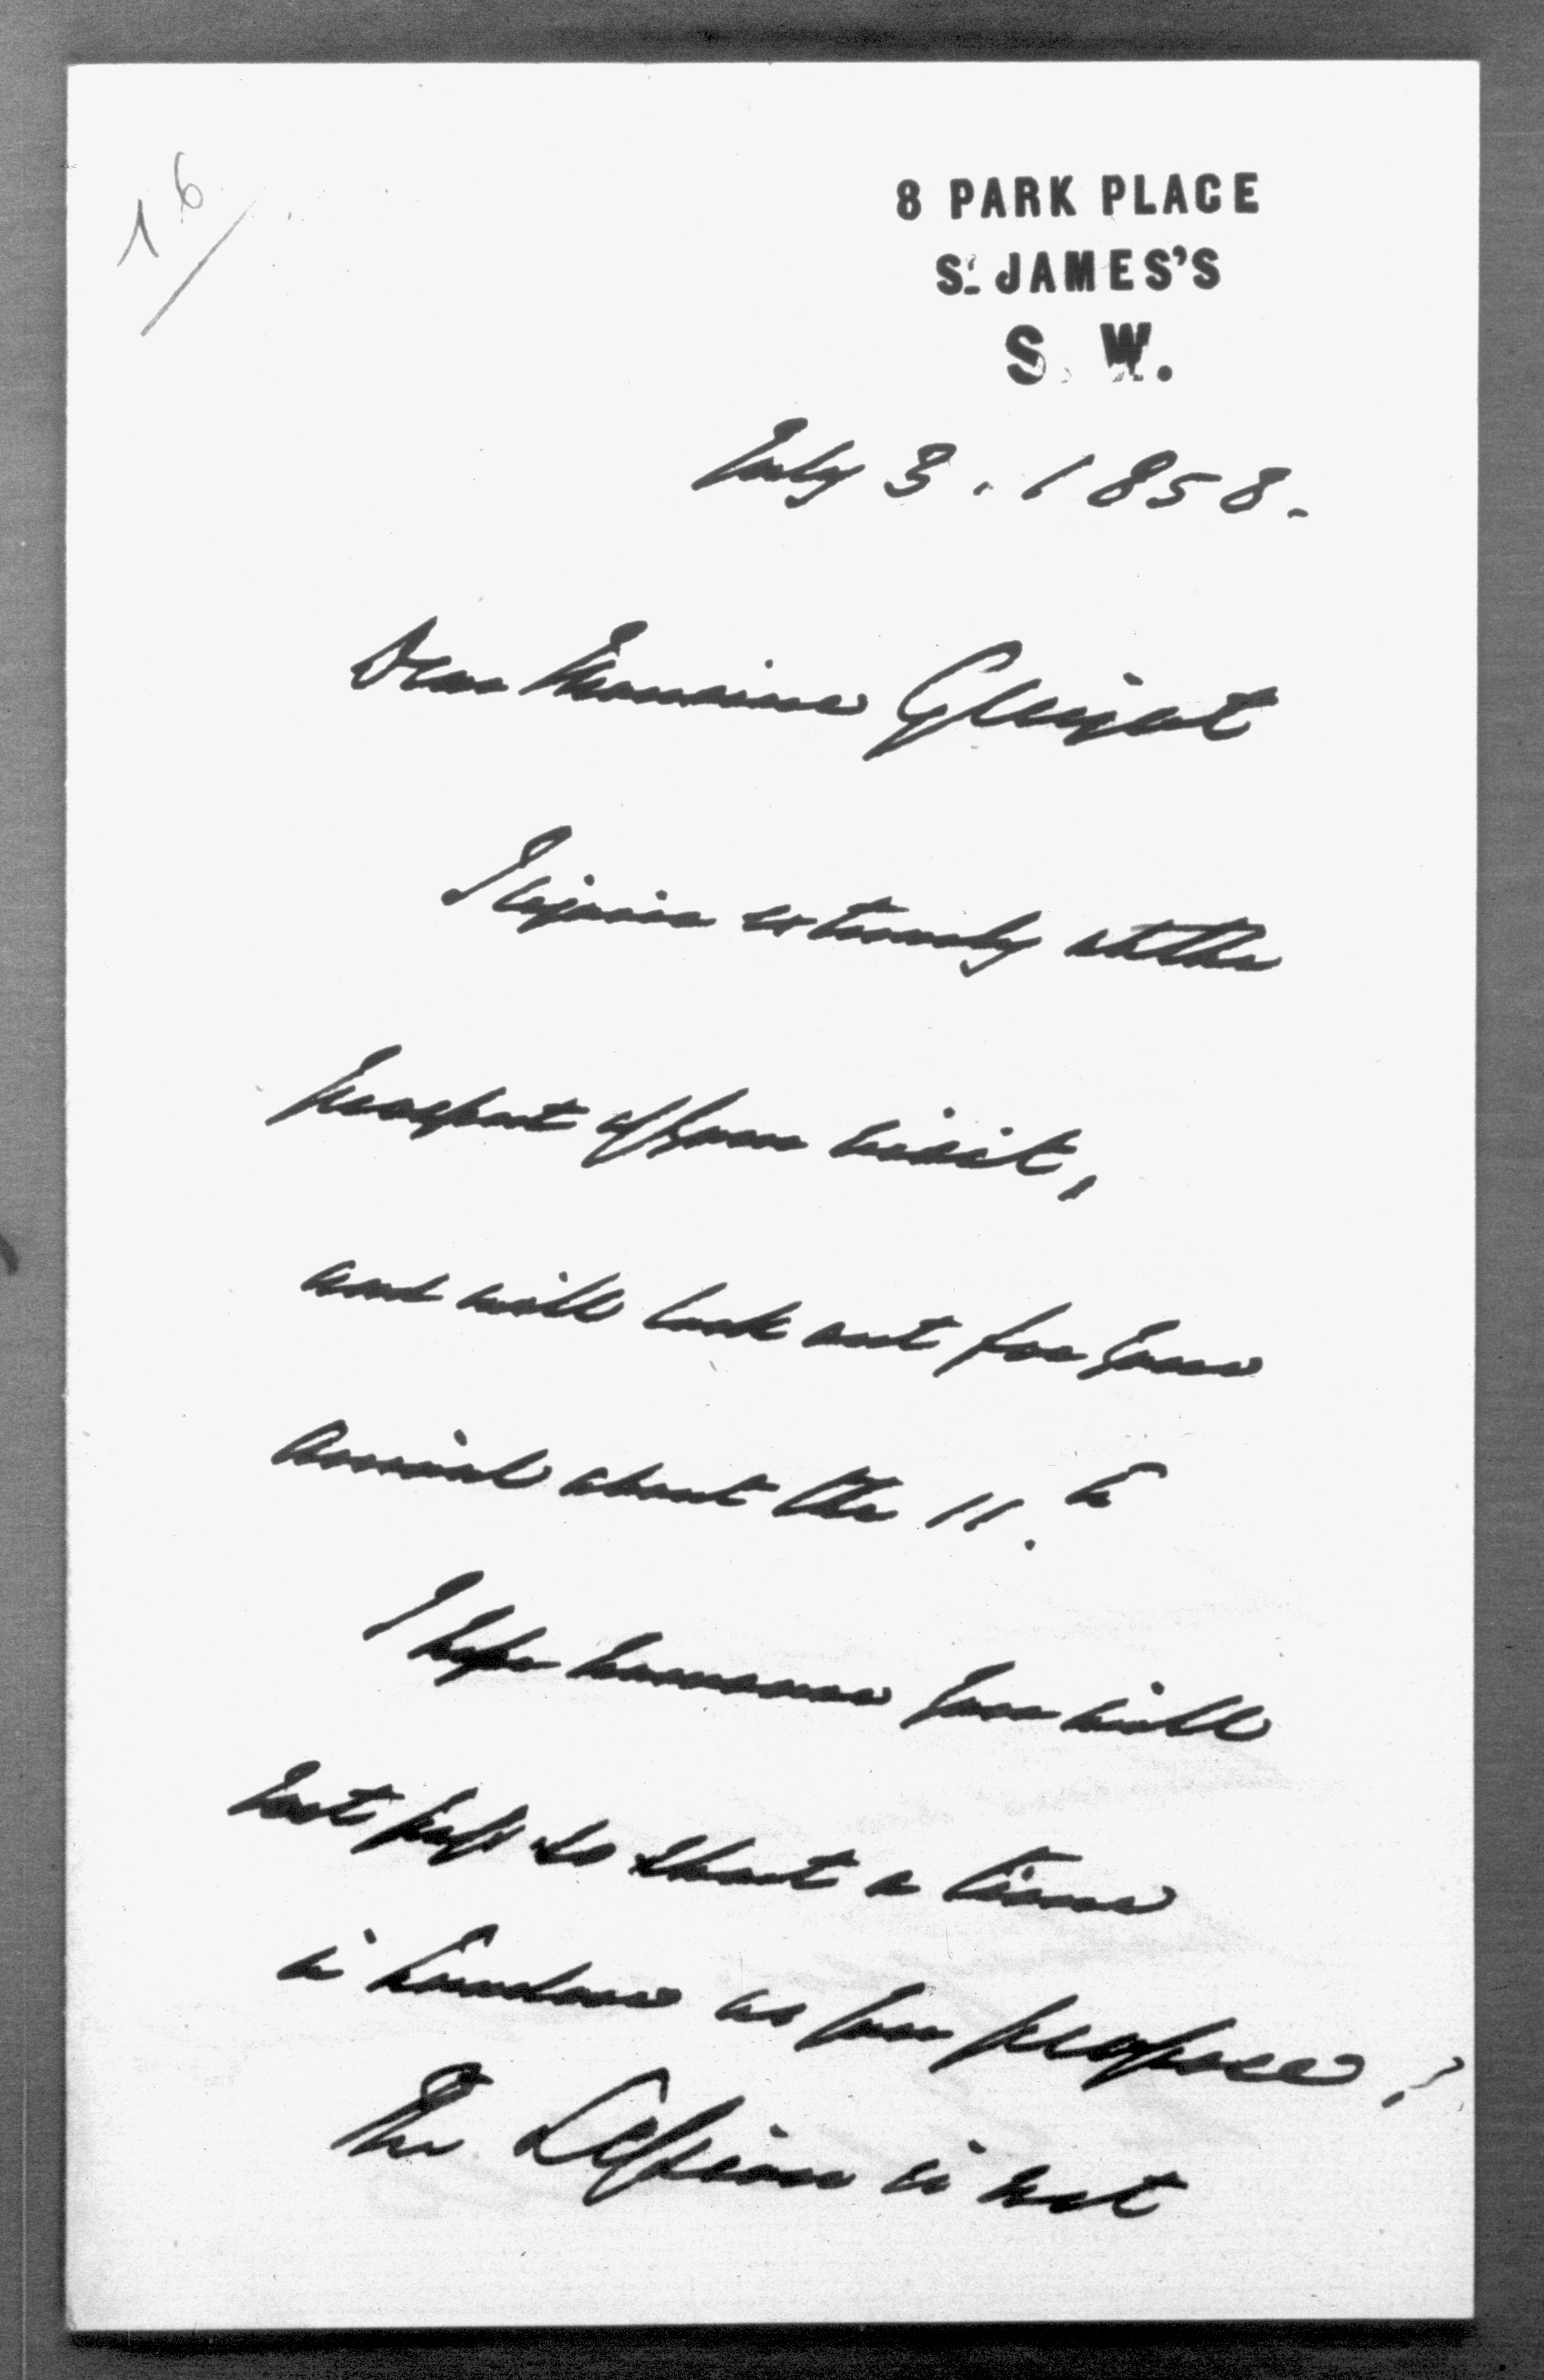 16
8 PARK PLACE
St. JAMES'S
S. W.
July 3. 1858.
Dear Monsieur Guizot
I rejoice extremely at the
prospect of your visit,
and will look out for your
arrival about the 11.th
I hope however you will
not pass so short a time
in London as you propose?
The Session is not